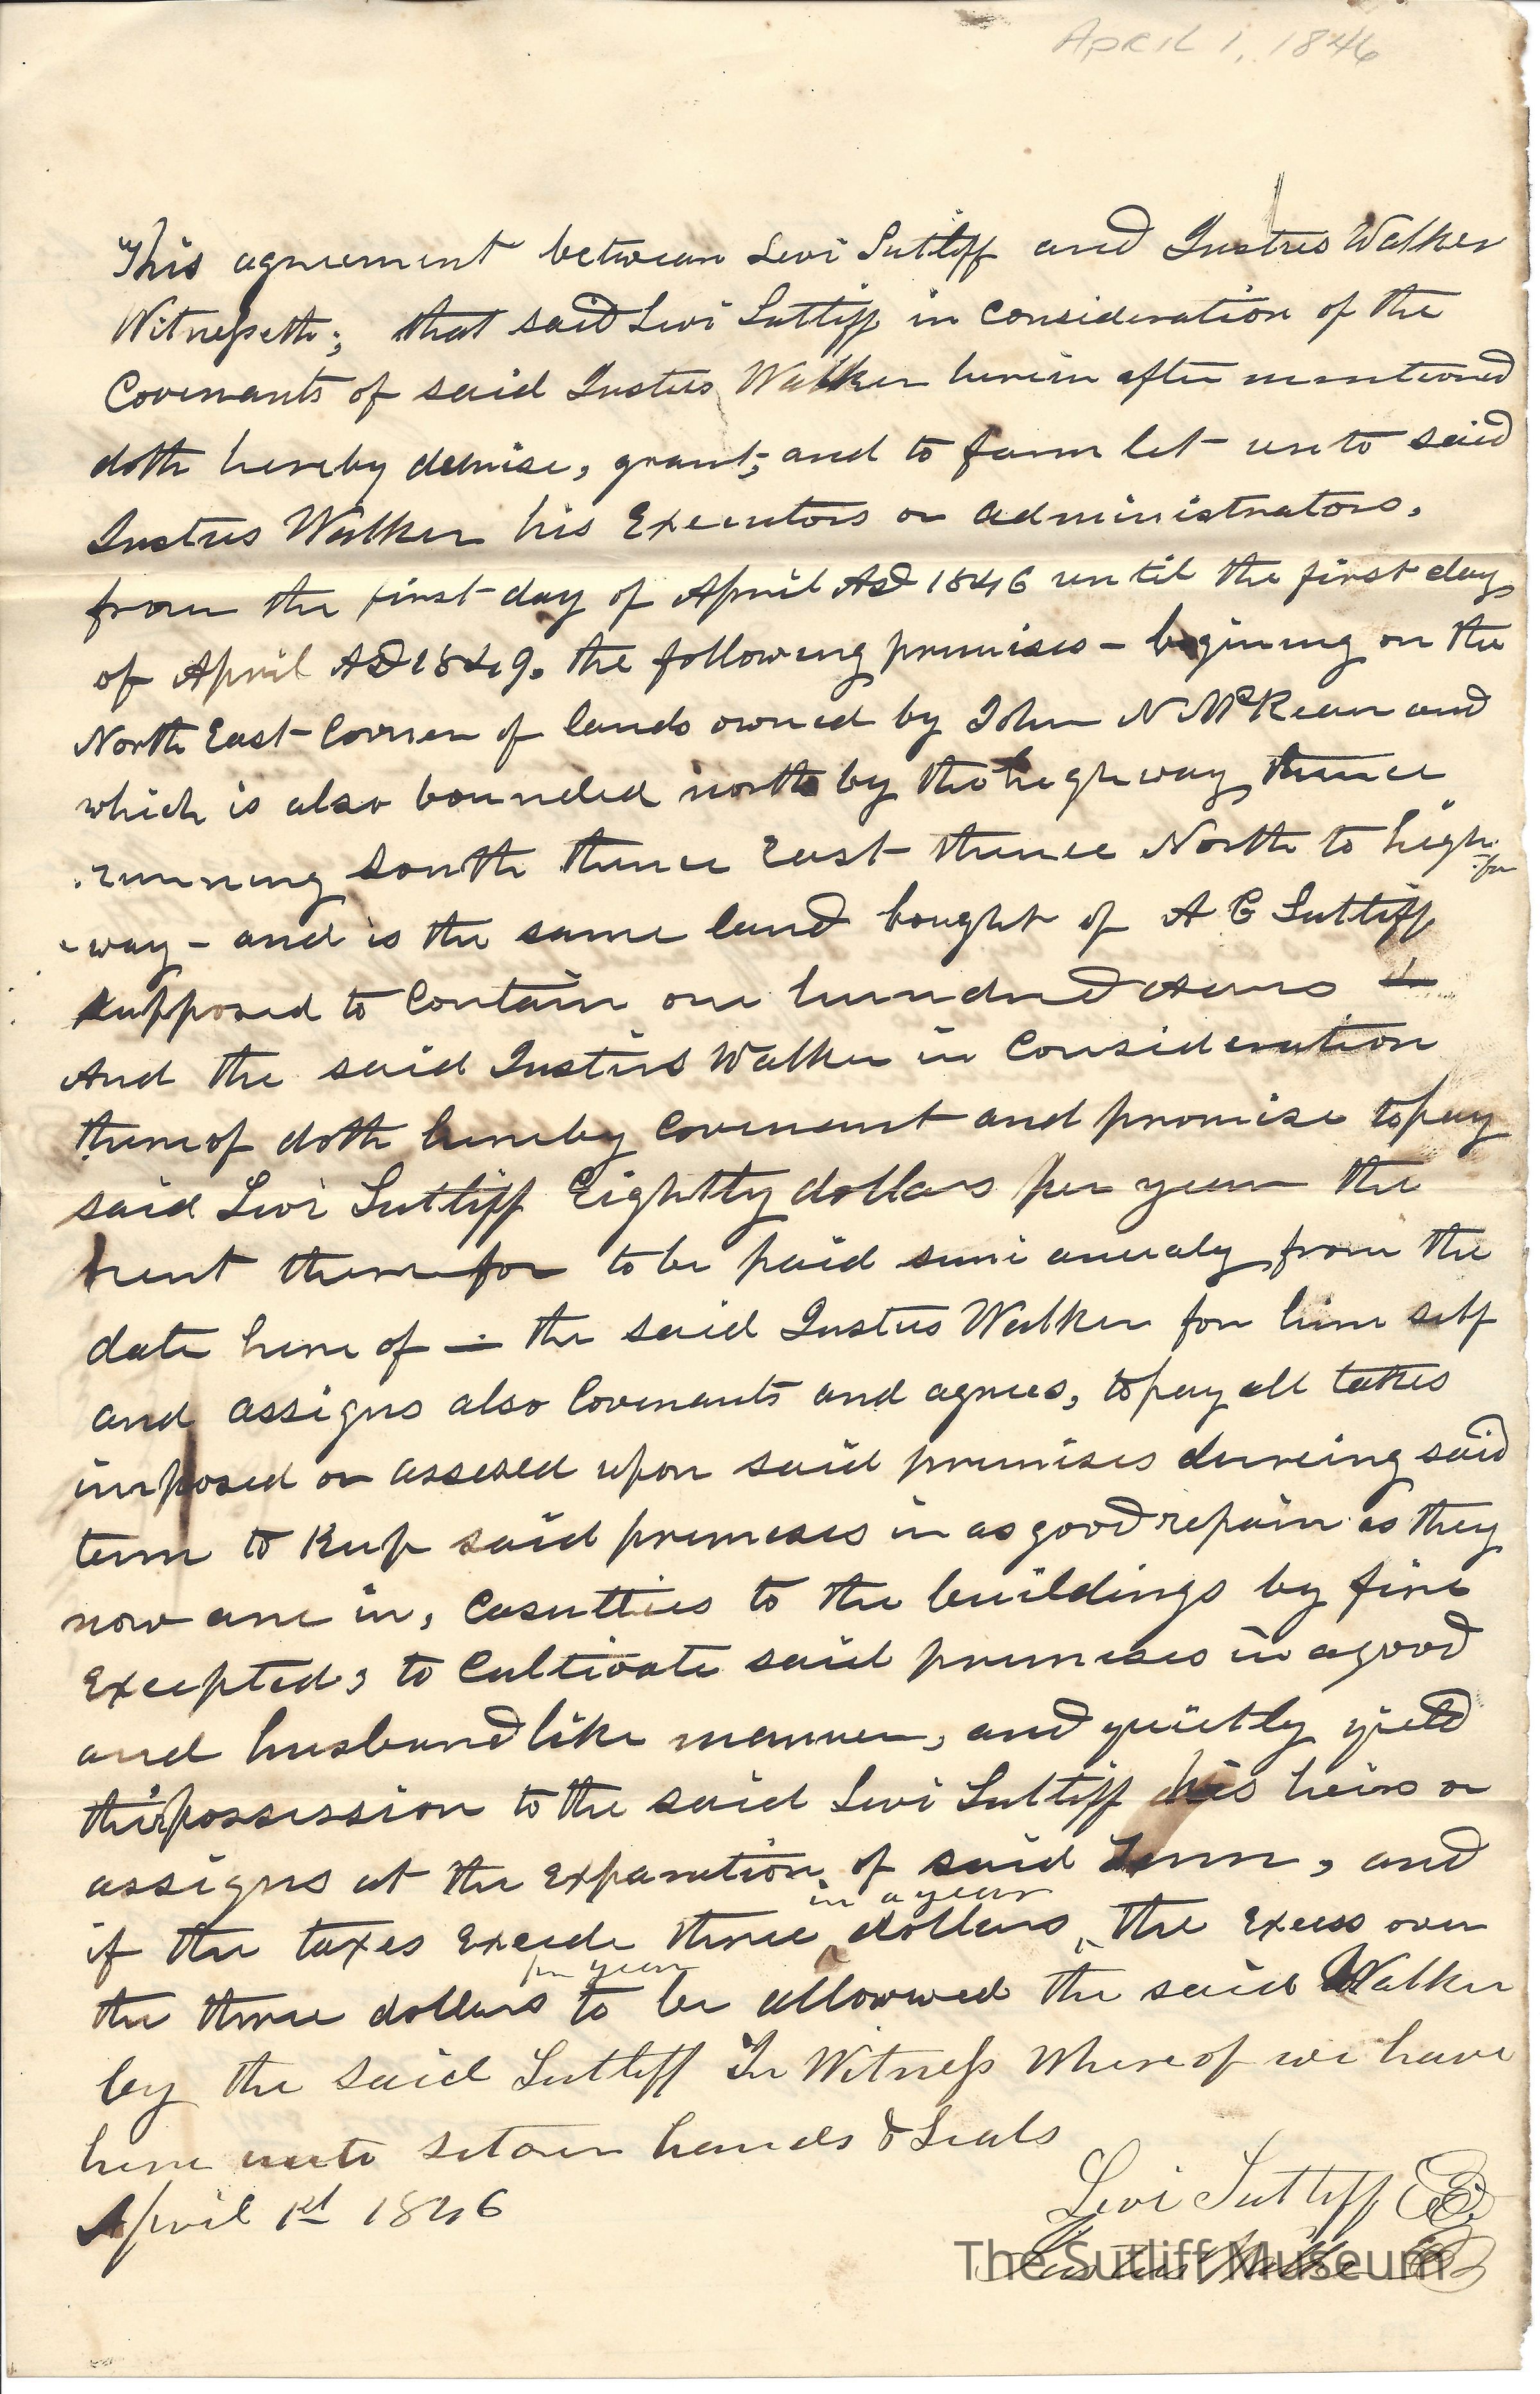 April 1, 1846
This agreement between Levi Sutliff and Justus Walker
Witnesseth; that said Levi Sutliff in Consideration of the
Covenants of said Justus Walker herein after mentioned
doth hereby demise, grant, and to farm let unto said
Justus Walker his Executors or administrators,
from the first day of April AD 1846 until the first day
of April AD 1849. the following premises - begining on the
North East Corner of lands owned by John N McKean and
which is also bounded north by the high way thence
running South thence East thence North to high
way - and is the same land bought of A C Sutliff
supposed to Contain one hundred Acres
And the said Justus Walker in Consideration
thereof doth hereby Covenant and promise to pay
said Levi Sutliff Eightty dollars per year the
rent therefor to be paid semi anualy from the
date here of - the said Justus Walker for him self
and assigns also Covenants and agrees, to pay all takes
imposed or assesed upon said premises dureing said
term to Keep said premeses in as good repair as they
now are in, Casulties to the buildings by fire
Excepted, to Cultivate said premeses in a good
and husband like manner, and quietly yield
the possession to the said Levi Sutliff his heirs or
assigns at the Exparation of said Term, and
in a year
if the taxes Exceede three dollars, the Excess over
per year
the three dollars to be allowwed the said Walker
by the said Sutliff In Witness Whereof we have
here unto set our hands & Seals
April 1st 1846
Levi Sutliff
Justus Walker
The Sutliff Museum